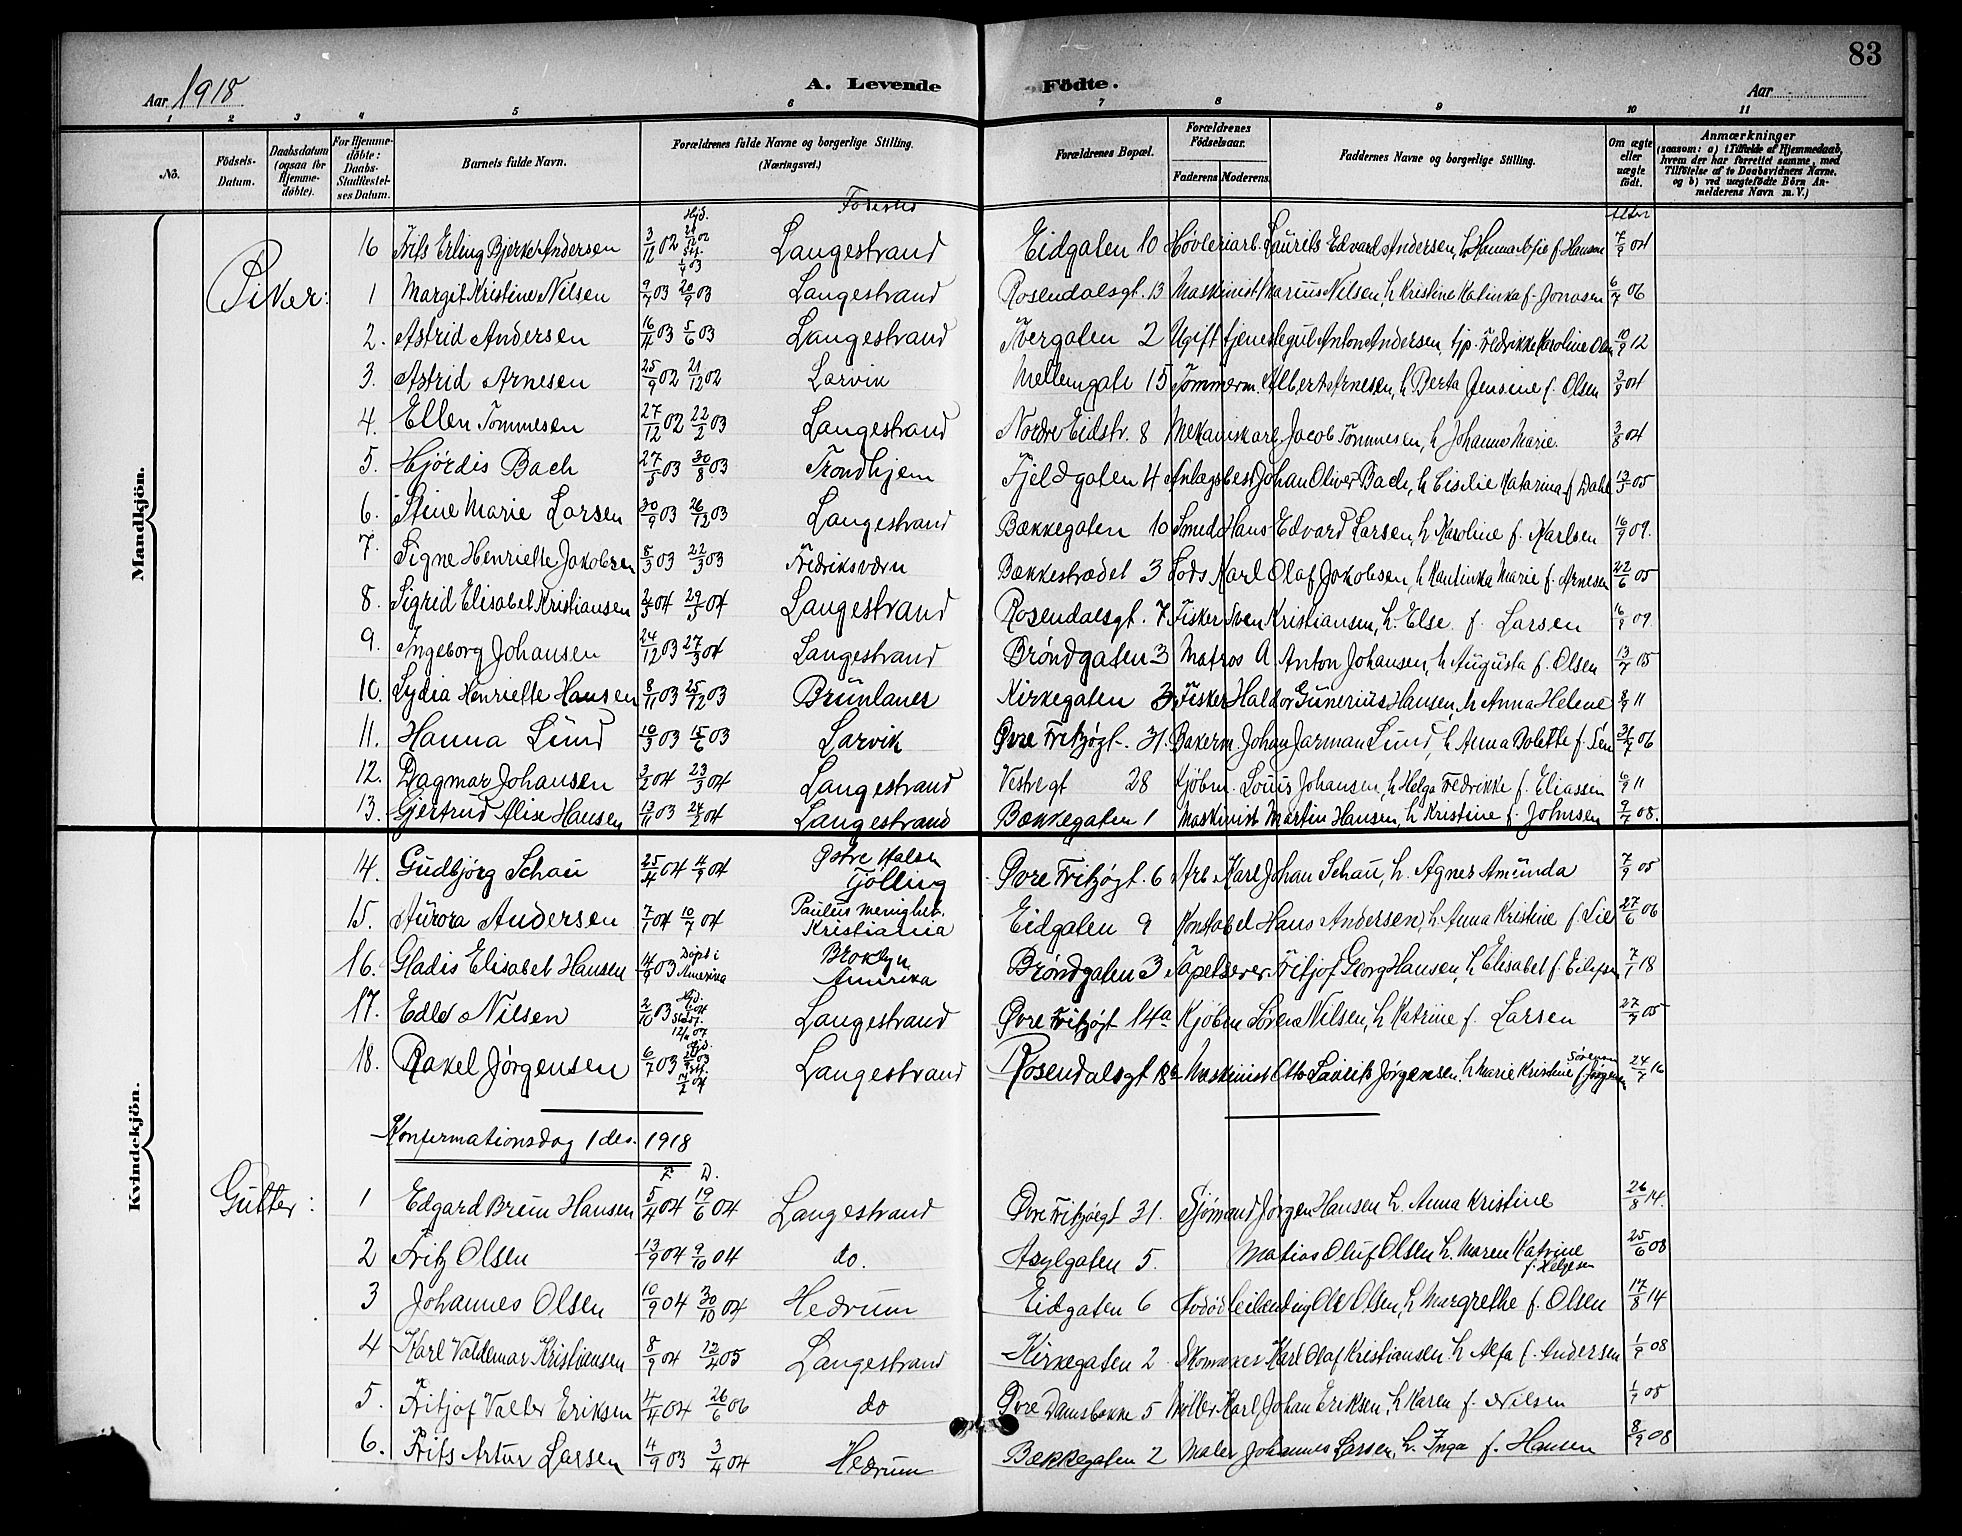 83
Aar 1918
A. Levende Födte.
Aar
1 2 3 4 5 6 7 8 9 10 11
No.
Födsels-Datum.
Daabsdatum (ogsaa for Hjemmedöbte).
For Hjemmedöbte: Daabs-Stadfæstelses Datum.
Barnets fulde Navn.
Forældrenes fulde Navne og borgerlige Stilling. (Næringsvei.)
Forældrenes Bopæl.
Forældrenes Födselsaar.
Faderens. Moderens.
Faddernes Navne og borgerlige Stilling.
Om ægte eller uægte födt.
Anmærkninger
(saasom: a) i Tilfælde af Hjemmedaab, hvem der har forrettet samme, med Tilföielse af to Daabsvidners Navne. og b) ved uægtefödte Börn Anmelderens Navn m. V.)
Mandkjön.
Kvindekjön.
16 Frits Erling Bjerke Andersen 3/12 02 Langestrand Eidgaten 10 Høvleriarb. Laurits Edvard Andersen, h. Hanna f. Hansen 7/9 04
Piker:
1 Margit Kristine Nilsen 9/7 03 20/9 03 Langestrand Rosendalsgt. 13 Maskinist Marius Nilsen, h. Kristine Katinka f. Jonasen 6/7 06
2. Astrid Andersen 16/4 03 5/6 03 Langestrand Tvergaten 2 Ugift tjenestegut Anton Andersen, tjp. Fredrikke Karoline Olsen 10/9 12
3. Astrid Arnesen 25/9 02 21/12 02 Larvik Mellemgate 15 Tømmerm. Albert Arnesen, h. Berta Jensine f. Olsen 3/9 04
4. Ellen Tommesen 27/12 02 22/2 03 Langestrand Nordre Eidstr. 8 Mekanisk arb. Jacob Tommesen, h. Johanne Marie. 3/8 04
5. Hjórdis Bach 27/5 03 30/8 03 Trondhjem Fjeldgaten 4 Anlægsbest. Johan Oliver Bach, h. Cisilie Katarina f. Dahl 05
6. Stine Marie Larsen 30/9 03 26/12 03 Langestrand Bækkegaten 10 Smed Hans Edvard Larsen, h. Karoline f. Karlsen 16/9 09.
7. Signe Henriette Jakobsen 8/3 03 22/3 03 Fredriksværn Bækkestrædet 3 Lods Karl Olaf Jakobsen, h. Marie f. Arnesen 22/6 05
8. Sigrid Elisabet Kristiansen 04 29/5 04 Langestrand Rosendalsgt. 7 Fisker Sven Kristiansen, h. Else f. Larsen 16/9 09.
9. Ingeborg Johansen 24/12 03 27/3 04 Langestrand Bróndgaten 3 Matros A Anton Johansen, h. Augusta f. Olsen 13/7 05
10. Lydia Henriette Hansen 8/11 03 25/12 03 Brünlanes Kirkegaten 3 Fisker Haldor Gunerius Hansen, h. Anna Helene 8/9 11
11. Hanna Lund 10/3 03 15/6 03 Larvik Øvre Fritzøgt. 31. Bakerm. Johan Jarman Lund, h. Anna Bolette 31/7 06
12. Dagmar Johansen 3/2 04 23/3 04 Langestrand Vestregt 28 Kjøbm. Louis Johansen, h. Helga Fredrikke f. Eliassen 6/9 11
13. Gjertrud Alise Hansen 13/11 03 24/2 04 Langestrand Bækkegaten 1 Maskinist Martin Hansen, h. Kristine f. Johnsen 9/7 08.
14. Gudbjórg Schau 25/4 04 4/9 04 Østre Halsen Tjølling Øvre Fritzøgt. 6 Arb. Karl Johan Schau, h. Agnes Amunda 7/9 05
15. Aurora Andersen 7/7 04 10/7 04 Paulus menighet. Kristiania Eidgaten 9 Konstabel Hans Andersen, h. Anna Kristine f. Lie 27/6 06
16. Gladis Elisabet Hansen 14/9 03 Døpt i Amerika Broklyn Amerika Bróndgaten 3 Tapetserer Fritjof Georg Hansen, h. Elisabet 7/1 18
17. Edle Nilsen 2/10 03 Langestrand Øvre Fritzøgt 14a Kjøbm Søren Nilsen, h. Katrine f. Larsen 27/7 05
18. Rakel Jørgensen 6/7 03 Langestrand Rosendalsgt Maskinist Otto Laurits Jørgensen. h. Marie Kristine Sørensen 24/7 16
Konfirmationsdag 1 des. 1918
F. D.
Gutter:
1 Edgard Brum Hansen 5/4 04 19/6 04 Langestrand Øvre Fritzøegt 31. Sjømand Jørgen Hansen h. Anna Kristine 26/8 14.
2 Fritz Olsen 13/9 04 9/10 04 do. Asylgaten 5. Matias Oluf Olsen h. Maren Katrine f. Helgesen 25/6 08
3 Johannes Olsen 10/9 04 30/10 04 Hedrum Eidgaten 6 Ole Olsen, h. Margrethe f. Olsen 17/8 14
4 Karl Valdemar Kristiansen 8/9 04 12/4 05 Langestrand Kirkegaten 2 Skomaker Karl Olaf Kristiansen. h. Alfa f. Andersen 1/9 08
5. Fritjof Valter Eriksen 4/4 04 26/6 06 do Øvre Damsbakke 5 Møller Karl Johan Eriksen, h. Karen f. Nilsen 1/9 05
6. Frits Artur Larsen 4/9 03 3/4 04 Hedrum Bækkegaten 2 Maler Johannes Larsen, h. Inga f. Hansen 8/9 08